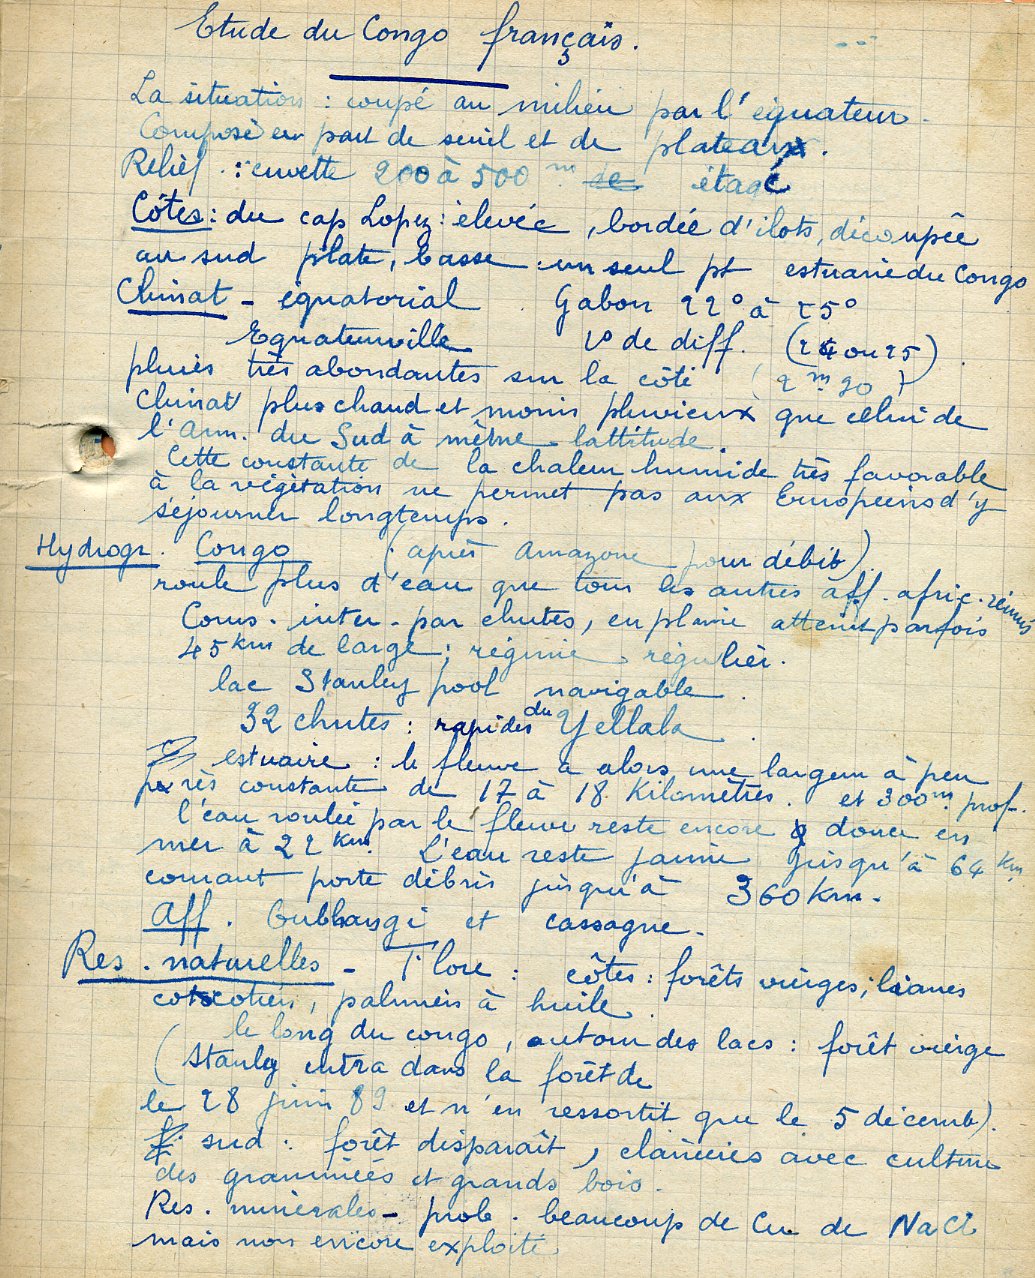 Etude du Congo français.
La situation : coupé au milieu par l'équateur.
Composé en part de seuil et de plateaux.
Relief : cuvette 200 à 500 m étagé
Côtes : du cap Lopez : élevée, bordée d'ilots, découpée
au sud plate, basse un seul pt estuaire du Congo
Climat - équatorial Gabon 22° à 25°
Equateurville 1° de diff. (24 ou 25)
pluies très abondantes sur la côte (2 m 20)
Climat plus chaud et moins pluvieux que celui de
l'Am. du Sud à même lattitude.
Cette constante de la chaleur humide très favorable
à la végétation ne permet pas aux Européens d'y
séjourner longtemps.
Hydrogr. Congo (après Amazone pour débit)
roule plus d'eau que tous les autres aff. afric. réunis
Cours. inter. par chutes, en plaine atteint parfois
45 km de large ; régime régulier.
lac Stanley pool navigable.
32 chutes : rapides du Yellala.
estuaire : le fleuve a alors une largeur à peu
près constante de 17 à 18 Kilomètres. et 300 m. prof.
l'eau roulée par le fleuve reste encore douce en
mer à 22 Km. L'eau reste jaune jusqu'à 64 Km
courant porte débris jusqu'à 360 Km.
Aff. Oubhangi et cassagne.
Res. naturelles - Flore : côtes : forêts vierges, lianes
cocotiers, palmiers à huile.
le long du congo, autour des lacs : forêt vierge
(Stanley entra dans la forêt de
le 28 juin 89 et n'en ressortit que le 5 décemb).
sud : forêt disparaît, clairières avec culture
des graminées et grands bois.
Res. minérales - prob. beaucoup de Cu de NaCl
mais non encore exploité